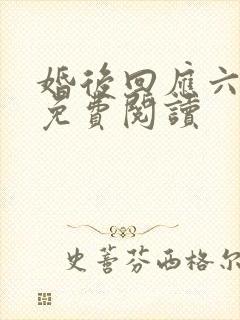 婚後回應六
免費閱讀
史蒈芬西格尔